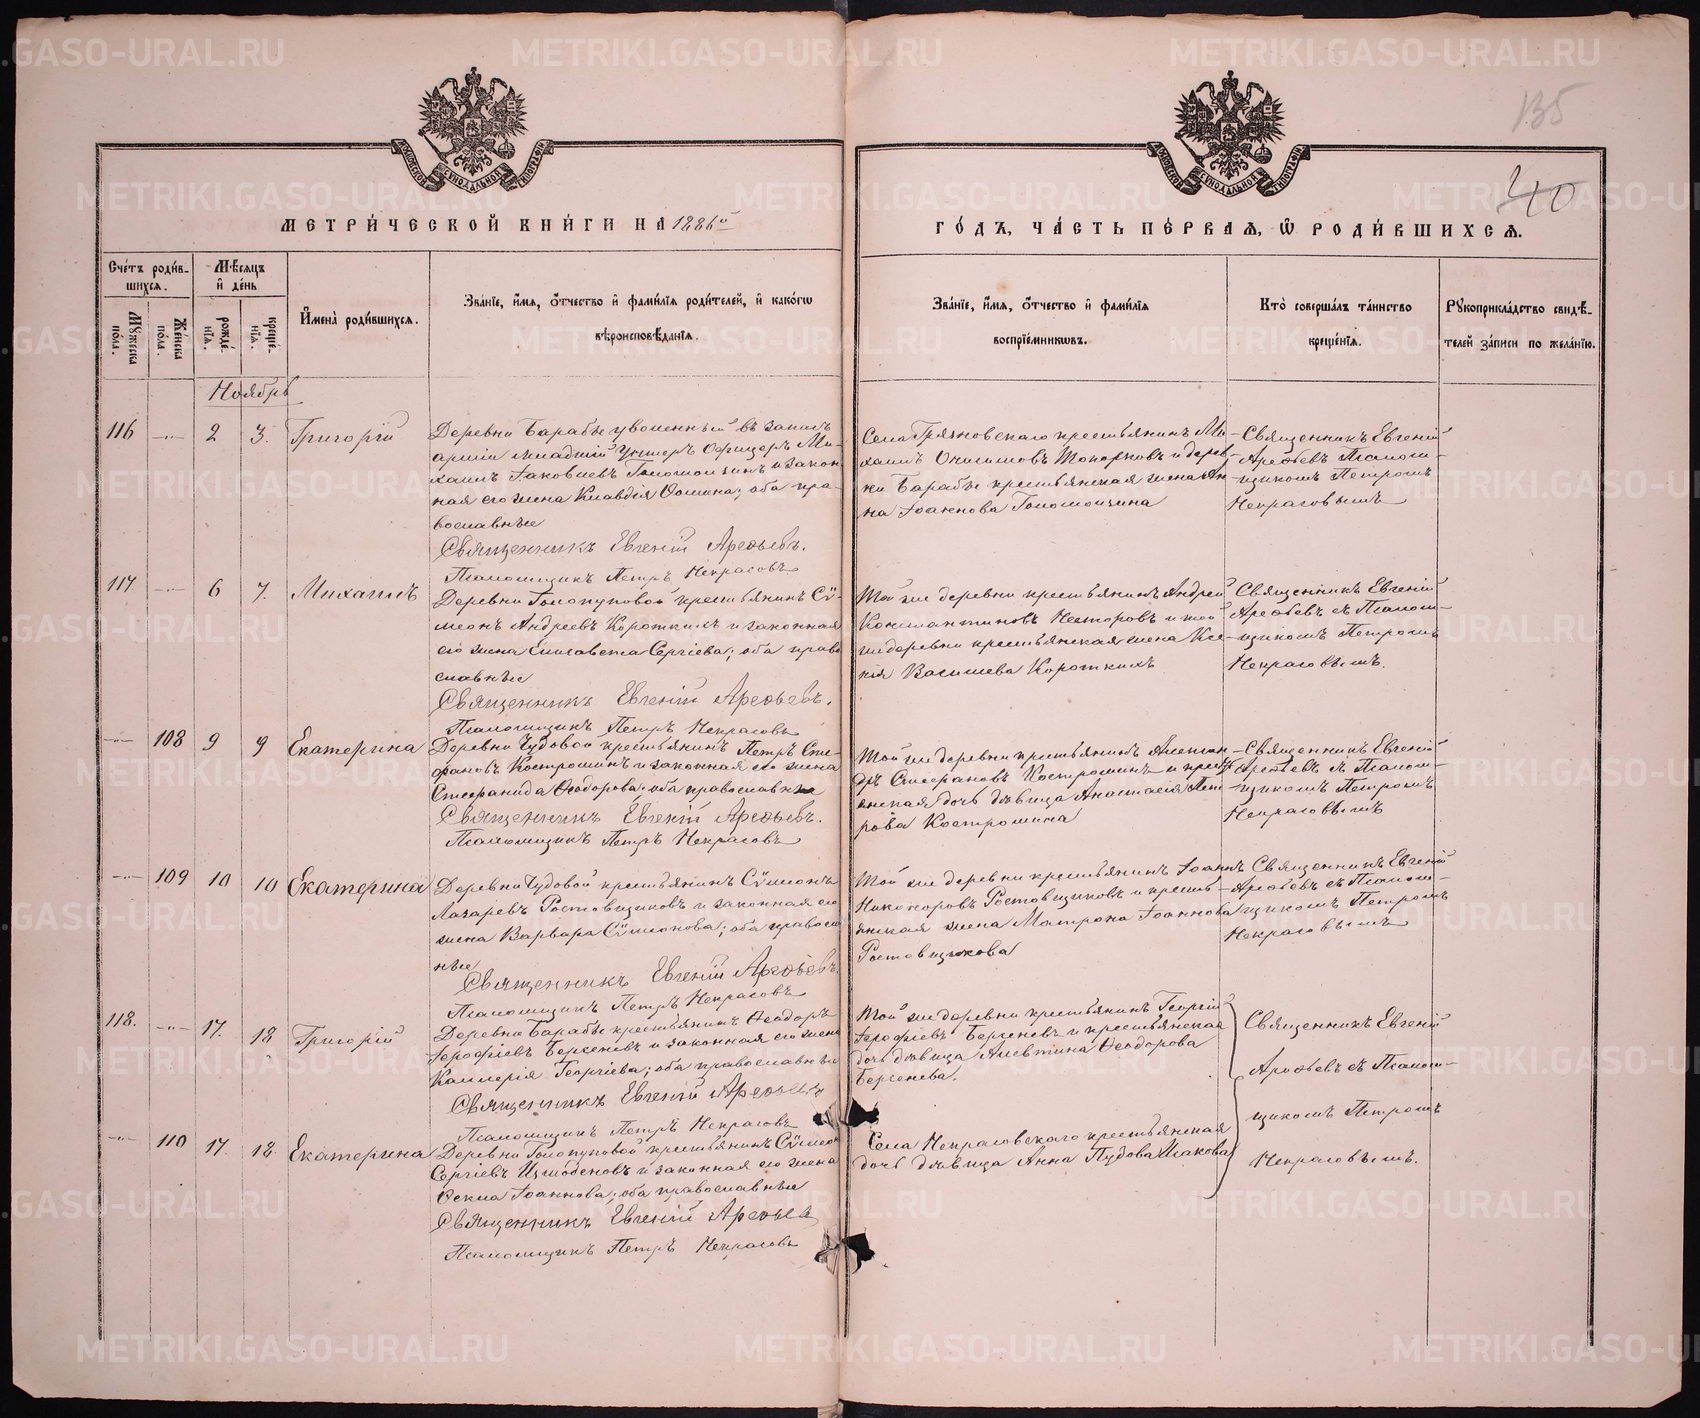 135
40
МЕТРИ́ЧЕСКОЙ КНИ́ГИ НА 1886й
ГО́ДЪ, ЧА́СТЬ ПЕ́РВАѦ, Ѽ РОДИ́ВШИХСѦ.
Сче́тъ роди́в-
шихсѧ.
Мꙋжеска по́ла.
Же́нска по́ла.
Мѣ́сѧцъ
и҆ де́нь
рожде́-
нїѧ.
креще́-
нїѧ.
И҆мена̀ роди́вшихсѧ.
Зва́нїе, и҆́мѧ, ѻ҆́тчество и҆ фами́лїѧ роди́телей, и҆ како́гѡ
вѣроисповѣ́данїѧ.
Зва́нїе, и҆́мѧ, ѻ҆́тчество и҆ фами́лїѧ
воспрїе́мникѡвъ.
Кто̀ соверша́лъ та́инство
креще́нїѧ.
Рꙋкоприкла́дство свидѣ́-
телей за́писи по жела́нїю.
Ноябрь
116 —"— 2 3. Григорій
Деревни Барабы уволенный въ запасъ
арміи младшій Унтеръ Офицеръ Ми-
хаилъ Іаковлевъ Голомолзинъ и закон-
ная его жена Клавдія Фомина; оба пра-
вославные
Священникъ Евгеній Арефьевъ.
Псаломщикъ Петръ Некрасовъ
Села Грязновскаго крестьянинъ Ми-
хаилъ Онисимовъ Топорковъ и дерев-
ни Барабы крестьянская жена Ан-
на Іоаннова Голомолзина
Священникъ Евгеній
Арефьевъ Псалом-
щикомъ Петромъ
Некрасовымъ
117 —"— 6 7. Михаилъ
Деревни Голопуповой крестьянинъ Сѵ-
меонъ Андреевъ Короткихъ и законная
его жена Елисавета Сергіева; оба право-
славные
Священникъ Евгеній Арефьевъ.
Псаломщикъ Петръ Некрасовъ
Той же деревни крестьянинъ Андрей
Константиновъ Несторовъ и той
же деревни крестьянская жена Ксе-
нія Васильева Короткихъ
Священникъ Евгеній
Арефьевъ съ Псалом-
щикомъ Петромъ
Некрасовымъ.
—"— 108 9 9 Екатерина
Деревни Чудовой крестьянинъ Петръ Сте-
фановъ Костроминъ и законная его жена
Стефанида Ѳеодорова; оба православные
Священникъ Евгеній Арефьевъ.
Псаломщикъ Петръ Некрасовъ
Той же деревни крестьянинъ Алексан-
дръ Стефановъ Костроминъ и кресть-
янская дочь дѣвица Анастасія Пет-
рова Костромина
Священникъ Евгеній
Арефьевъ съ Псалом-
щикомъ Петромъ
Некрасовымъ
—"— 109 10 10 Екатерина
Деревни Чудовой крестьянинъ Сѵмеонъ
Лазаревъ Ростовщиковъ и законная его
жена Варвара Сѵмеонова; оба правосла-
ные
Священникъ Евгеній Арефьевъ
Псаломщикъ Петръ Некрасовъ
Той же деревни крестьянинъ Іоаннъ
Никоноровъ Ростовщиковъ и кресть-
янская жена Матрона Іоаннова
Ростовщикова
Священникъ Евгеній
Арефьевъ съ Псалом-
щикомъ Петромъ
Некрасовымъ
118. —"— 17. 18 Григорій
Деревни Барабы крестьянинъ Ѳеодоръ
Іерофіевъ Берсеневъ и законная его жена
Каллерія Георгіева; оба православные
Священникъ Евгеній Арефьевъ
Псаломщикъ Петръ Некрасовъ
Той же деревни крестьянинъ Георгій
Іерофіевъ Берсеневъ и крестьянская
дочь дѣвица Алевтина Ѳеодорова
Берсенева.
Священникъ Евгеній
Арефьевъ съ Псалом-
щикомъ Петромъ
Некрасовымъ.
—"— 110 17. 18. Екатерина
Деревни Голопуповой крестьянинъ Сѵмеонъ
Сергіевъ Изможеновъ и законная его жена
Ѳекла Іоаннова; оба православные
Священникъ Евгеній Арефьевъ
Псаломщикъ Петръ Некрасовъ
Села Некрасовскаго крестьянская
дочь дѣвица Анна Пудова Исакова
METRIKI.GASO-URAL.RU